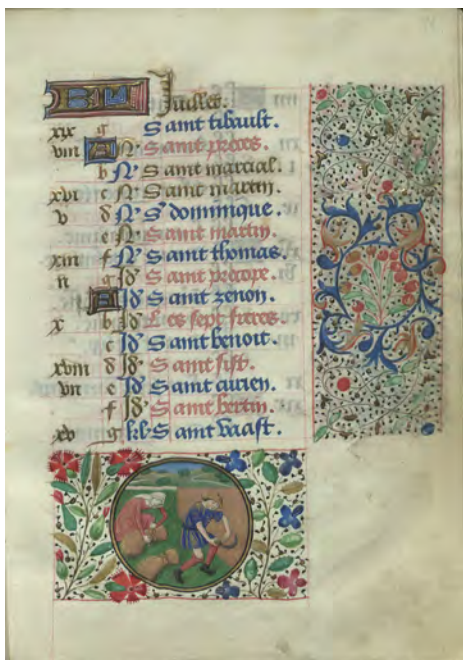 KL Juillet.
xix g Saint tibault.
viii A N Saint preces.
b N Saint marcial.
xvi c N Saint martin.
v d N S dominique.
e N Saint martin.
xiii f N Saint thomas.
ii g Id Saint procope.
A Id Saint zenon.
x b Id Les sept freres.
c Id Saint benoit.
xviii d Id Saint sist.
vii e Id Saint aurien.
f Id Saint bertin.
xv g kl Saint vaast.